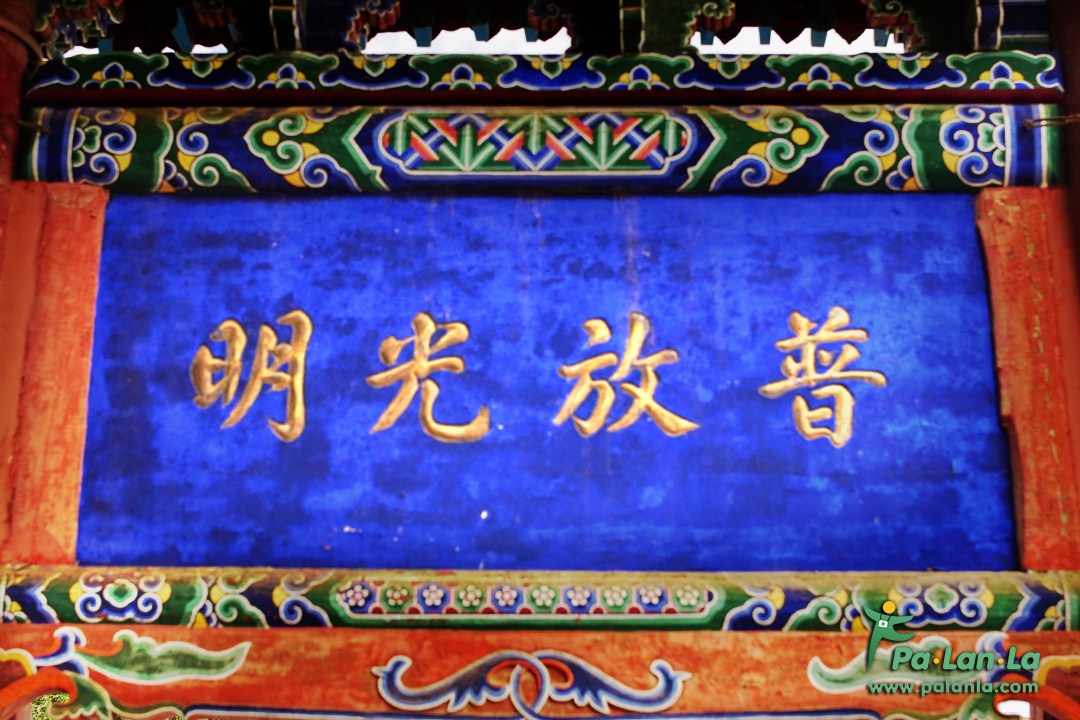 普放光明
Pa·Lan·La
www.palanla.com